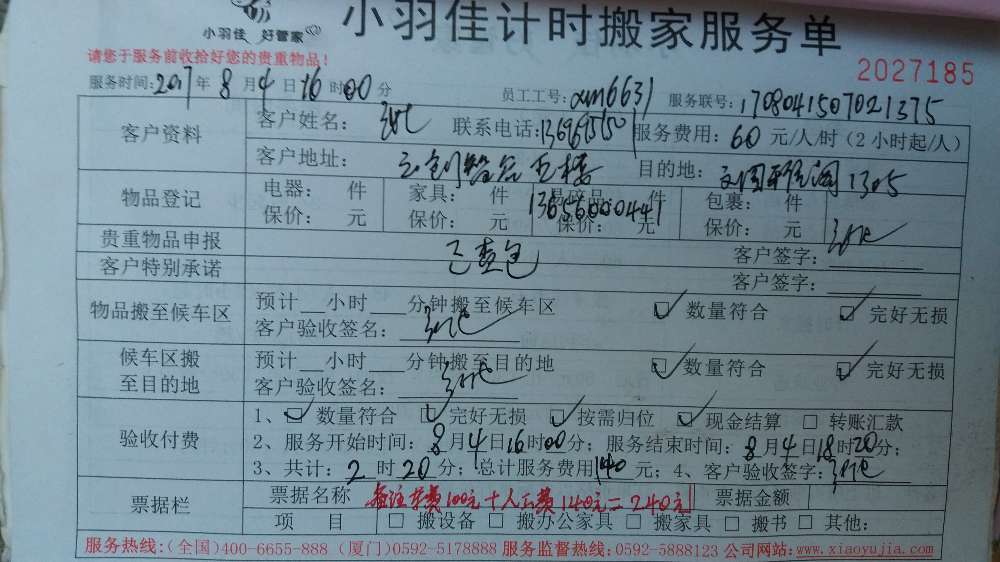 小羽佳 好管家
小羽佳计时搬家服务单
请您于服务前收拾好您的贵重物品!
2027185
服务时间:2017年8月4日16时00分 员工工号:am6631 服务联号:1708041507021375
客户资料 客户姓名: 联系电话: 服务费用:60元/人/时(2小时起/人)
客户地址: 目的地: 1305
物品登记 电器: 件 家具: 件 易碎品: 件 包裹: 件
保价: 元 保价: 元 保价: 元 保价: 元
13656000441
贵重物品申报 客户签字:
已查包
客户特别承诺 客户签字:
物品搬至候车区 预计__小时___分钟搬至候车区 ☑ 数量符合 ☑ 完好无损
客户验收签名:
候车区搬至目的地 预计__小时___分钟搬至目的地 ☑ 数量符合 ☑ 完好无损
客户验收签名:
验收付费 1、☑ 数量符合 ☑ 完好无损 ☑ 按需归位 ☑ 现金结算 □ 转账汇款
2、服务开始时间:8月4日16时00分;服务结束时间:8月4日18时20分;
3、共计:2时20分;总计服务费用140元;4、客户验收签字:
票据栏 票据名称 备注车费100元+人工费140元=240元 票据金额
项 目 □ 搬设备 □ 搬办公家具 □ 搬家具 □ 搬书 □ 其他:
服务热线:(全国)400-6655-888 (厦门)0592-5178888 服务监督热线:0592-5888123 公司网站:www.xiaoyujia.com